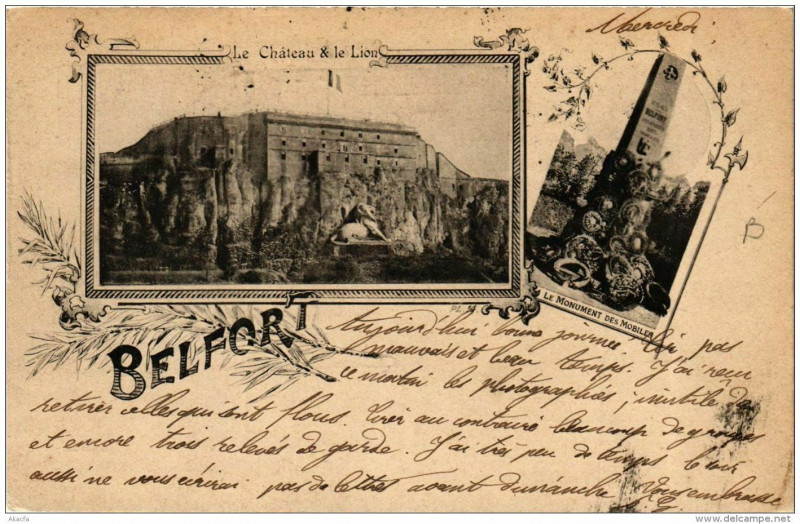 Mercredi
Le Château & le Lion
BELFORT
LE MONUMENT DES MOBILES
BELFORT
Aujourd'hui bonne journée. Hier pas
mauvais et beau temps. J'ai reçu
ce matin les photographies ; inutile de
retirer celles qui sont flous. Hier au contraire beaucoup de
et encore trois relevés de garde. J'ai très peu de temps
aussi ne vous écrirai pas de lettres avant dimanche. Vous embrasse
Akacfa
www.delcampe.net